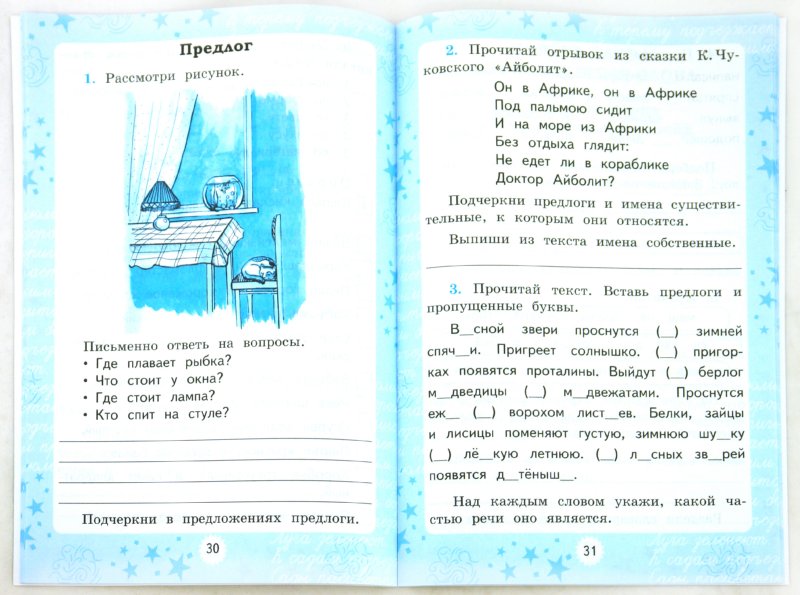 Предлог
1. Рассмотри рисунок.
Письменно ответь на вопросы.
• Где плавает рыбка?
• Что стоит у окна?
• Где стоит лампа?
• Кто спит на стуле?
Подчеркни в предложениях предлоги.
30
2. Прочитай отрывок из сказки К. Чу-
ковского «Айболит».
Он в Африке, он в Африке
Под пальмою сидит
И на море из Африки
Без отдыха глядит:
Не едет ли в кораблике
Доктор Айболит?
Подчеркни предлоги и имена существи-
тельные, к которым они относятся.
Выпиши из текста имена собственные.
3. Прочитай текст. Вставь предлоги и
пропущенные буквы.
В__сной звери проснутся (__) зимней
спяч__и. Пригреет солнышко. (__) пригор-
ках появятся проталины. Выйдут (__) берлог
м__дведицы (__) м__двежатами. Проснутся
еж__ (__) ворохом лист__ев. Белки, зайцы
и лисицы поменяют густую, зимнюю шу__ку
(__) лё__кую летнюю. (__) л__сных зв__рей
появятся д__тёныш__.
Над каждым словом укажи, какой ча-
стью речи оно является.
31